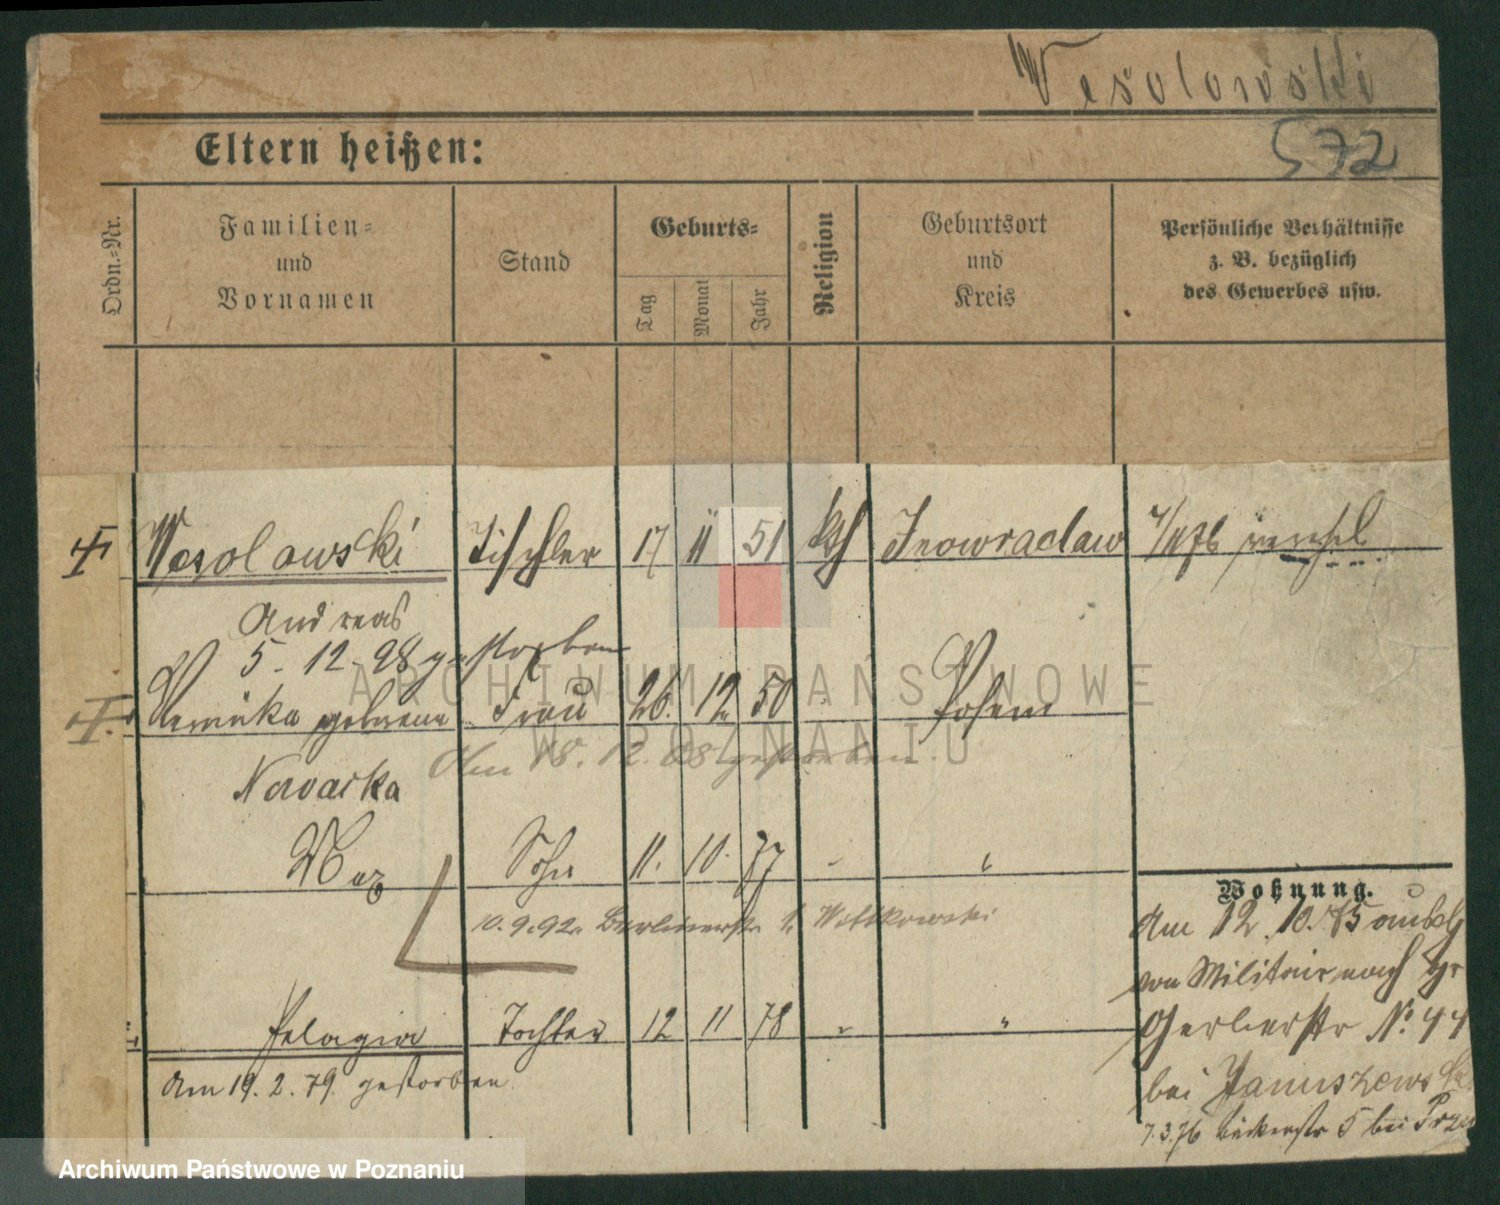 Wesolowski
Eltern heißen:
572
Ordn.-Nr.
Familien-
und
Vornamen
Stand
Geburts-
Tag
Monat
Jahr
Religion
Geburtsort
und
Kreis
Persönliche Verhältnisse
z. B. bezüglich
des Gewerbes usw.
Wesolowski Tischler 17 11 51 kth Inowraclaw
Andreas
5. 12. 98 gestorben
geborene Frau 26. 12 50 Posen
Am 18. 12. 08 gestorben.
Nowacka
Max Sohn 11. 10. 77 " "
10. 9. 92. Berlinerstr 1. Wittkowski
Pelagia Tochter 12 11 78 " "
Am 19. 2. 79. gestorben.
Wohnung.
Am 12. 10. 75
von Militair nach
Gerberstr No. 44
bei Januszewski
7. 3. 76 Bäckerstr 5 bei
ARCHIWUM PAŃSTWOWE
W POZNANIU
Archiwum Państwowe w Poznaniu